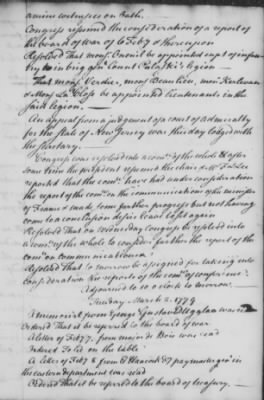 amine witnesses on Oath.
Congress resumed the consideration of a report of
the board of war of 6 Feby & thereupon
Resolved That mons. be appointed capt of infan-
try in brig genl Count Pulaski's legion
That mons. Verdier, mons. Beaulieu, mons.
& mons. La Close be appointed lieutenants in the
said legion.
An appeal from a judgement of a court of Admiralty
for the state of New Jersey was this day lodged with
the secretary.
Congress was resolved into a comee. of the whole & after
some time the president resumed the chair &
reported that the comee. have had under consideration
the report of the comee. on the communications of the minister
of France & made some farther progress but not having
come to a conclusion desire leave to sit again
Resolved That on Wednesday Congress be resolved into
a comee. of the whole to consider farther the report of the
comee. on communications
Resolved That to morrow be assigned for taking into
consideration the reports of the comee. of conference
Adjourned to 10 o clock to morrow.
Tuesday March 2. 1779
A memorial from George Gustavus Uggla was read
Ordered That it be referred to the board of war.
A letter of Feby 7. from was read
Ordered To lie on the table.
A letter of Feby 8 from E Hancock Dy paymaster genl in
the eastern department was read
Ordered That it be referred to the board of treasury.